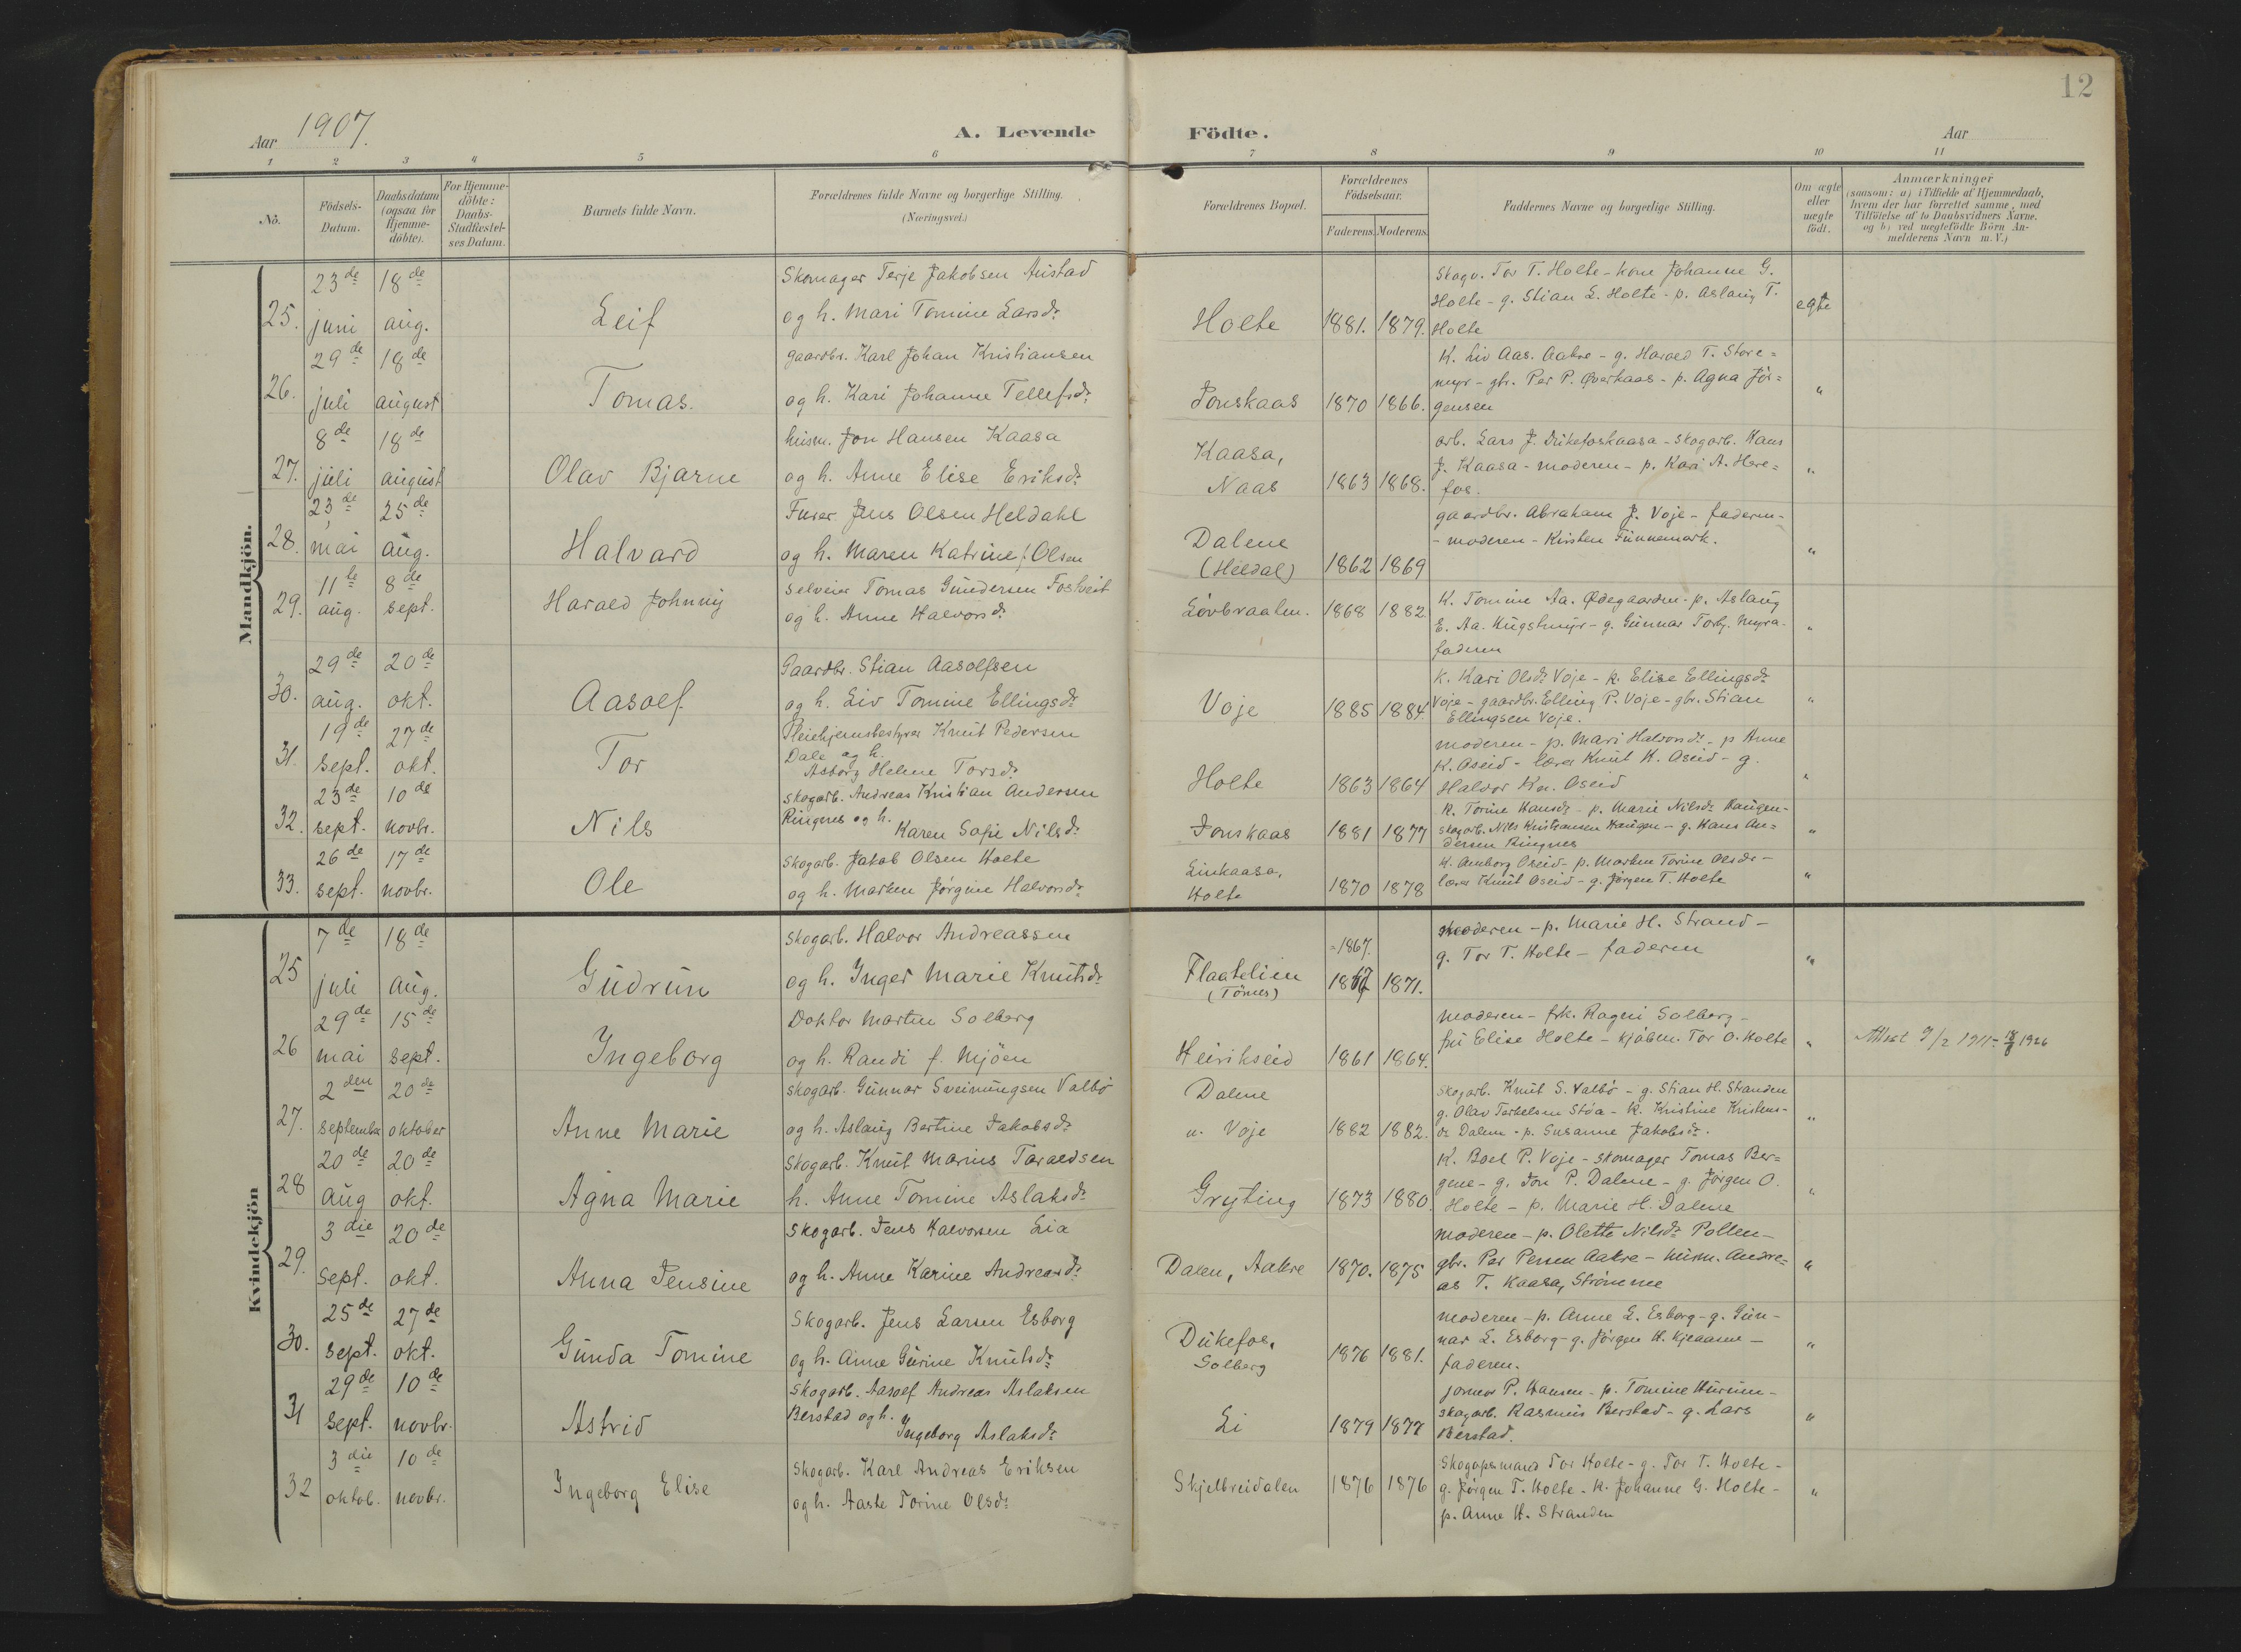 12
Aar 1907.
A. Levende Födte.
Aar
1 2 3 4 5 6 7 8 9 10 11
No.
Födsels-Datum.
Daabsdatum (ogsaa for Hjemme-döbte).
For Hjemme-döbte: Daabs-Stadfæstel-ses Datum.
Barnets fulde Navn.
Forældrenes fulde Navne og borgerlige Stilling. (Næringsvei.)
Forældrenes Bopæl.
Forældrenes Födselsaar.
Faderens. Moderens.
Faddernes Navne og borgerlige Stilling.
Om ægte eller uægte födt.
Anmærkninger
(saasom: a) i Tilfælde af Hjemmedaab,
hvem der har forrettet samme, med
Tilföielse af to Daabsvidners Navne.
og b) ved uegtefödte Börn An-
melderens Navn m. V.)
Mandkjön.
25. 23de juni 18de aug. Leif
Skomager Terje Jakobsen Austad
og h. Mari Tomine Larsdr
Holte 1881. 1879.
Skogv. Tor T. Holte - kone Johanne G.
Holte - g. Stian L. Holte - p. Aslaug T.
Holte
egte
26. 29de juli 18de august Tomas.
gaardbr. Karl Johan Kristiansen
og h. Kari Johanne Tellefsdr
Jonskaas 1870 1866.
K. Liv Aas. Aakre - g. Harald T. Store=
myr - gbr. Per P. Øverkaas - p. Agna Jör=
gensen
"
27. 8de juli 18de august Olav Bjarne
husm. Jon Hansen Kaasa
og h. Anne Elise Eriksdr
Kaasa,
Naas 1863 1868.
arb. Lars J. Dukefoskaasa - skogarb. Hans
J. Kaasa - moderen - p. Kari A. Here=
fos.
"
28. 23de mai 25de aug. Halvard
Furer Jens Olsen Heldahl
og h. Maren Katrine f. Olsen
Dalene
(Heldal) 1862 1869
gaardbr. Abraham J. Voje - faderen -
- moderen - Kirsten Funnemark.
"
29. 11te aug. 8de sept. Harald Johnny
Selveier Tomas Gundersen Fostveit
og h. Anne Halvorsdr
Lövbraaten. 1868 1882.
K. Tomine Aa. Ødegaarden - p. Aslaug
E. Aa. Hugstmyr - g. Gunnar Torbj. Myra -
faderen
"
30. 29de aug. 20de okt. Aasolf
Gaardbr. Stian Aasolfsen
og h. Liv Tomine Ellingsdr
Voje 1885 1884.
K. Kari Olsdr Voje - p. Elise Ellingsdr
Voje - gaardbr. Elling P. Voje - gbr. Stian
Ellingsen Voje.
"
31. 19de sept. 27de okt. Tor
Pleiehjemsbestyrer Knut Pedersen
Dale og h.
Asborg Helene Torsdr
Holte 1863 1864
moderen - p. Mari Halvorsdr - p Anne
K. Oseid - lærer Knut K. Oseid - g.
Halvor Kn. Oseid
"
32. 23de sept. 10de novbr. Nils
Skogarb. Andreas Kristian Andersen
Ringnes og h.
Karen Sofie Nilsdr
Jonskaas 1881 1877
K. Torine Hansdr - p. Marie Nilsdr Haugen-
skogarb. Nils Kristiansen Haugen - g. Hans An=
dersen Ringnes
"
33. 26de sept. 17de novbr. Ole
Skogarb. Jakob Olsen Holte
og h. Marken Jörgine Halvorsdr
Linkaasa,
Holte 1870 1878
K. Amborg Oseid - p. Marken Torine Olsdr -
lærer Knut Oseid - g. Jörgen T. Holte
"
Kvindekjön
25 7de juli 18de aug. Gudrun
Skogarb. Halvor Andreassen
og h. Inger Marie Knutsdr
Flaatelien
(Tömes) =1867. 1871.
moderen - p. Marie H. Strand -
g. Tor T. Holte - faderen
"
26 29de mai 15de sept. Ingeborg
Doktor Martin Solberg
og h. Randi f. Mjöen
Heirikseid 1861 1864.
moderen - frk. Ragni Solberg -
fru Elise Holte - kjöbm. Tor O. Holte
"
Attest 9/2 1911 - 1926
27. 2den september 20de oktober Anne Marie
Skogarb. Gunnar Sveinungsen Valbö
og h. Aslaug Bertine Jakobsdr
Dalene
u. Voje 1882 1882.
Skogarb. Knut S. Valbö - g. Stian H. Stranden
g. Olav Terkelsen Stöa - K. Kristine Kristens-
dr Dalen - p. Susanne Jakobsdr.
"
28 20de aug 20de okt. Agna Marie
Skogarb. Knut Marius Taraldsen
h. Anne Tomine Aslaksdr
Gryting 1873 1880.
K. Boel P. Voje - skomager Tomas Ber=
gene - g. Jon P. Dalene - g. Jörgen O.
Holte - p. Marie H. Dalene
"
29. 3die sept. 20de okt. Anna Jensine
Skogarb. Jens Halvorsen Lia
og h. Anne Karine Andreasdr
Dalen, Aakre 1870. 1875
moderen - p. Olette Nilsdr Pollen -
gbr. Per Persen Aakre - husm. Andre=
as T. Kaasa, Strömme
"
30. 25de sept. 27de okt. Gunda Tomine
Skogarb. Jens Larsen Esborg
og h. Anne Gurine Knutsdr
Dukefos,
Solberg 1876 1881.
moderen - p. Anne L. Esborg - g. Gun-
nar L. Esborg - g. Jörgen H. Kjeaasen -
faderen.
"
31 29de sept. 10de novbr. Astrid
Skogarb. Aasolf Andreas Aslaksen
Berstad og h.
Ingeborg Aslaksdr
Li 1879 1877
jormor P. Hansen - p. Tomine Hurum -
skogarb. Rasmus Berstad - g. Lars
Berstad.
"
32 3die oktob. 10de novbr. Ingeborg Elise
Skogarb. Karl Andreas Eriksen
og h. Aaste Torine Olsdr
Skjelbreidalen 1876 1876
Skogopsmand Tor Holte - g. Tor T. Holte -
g. Jörgen T. Holte - K. Johanne G. Holte -
p. Anne H. Stranden
"